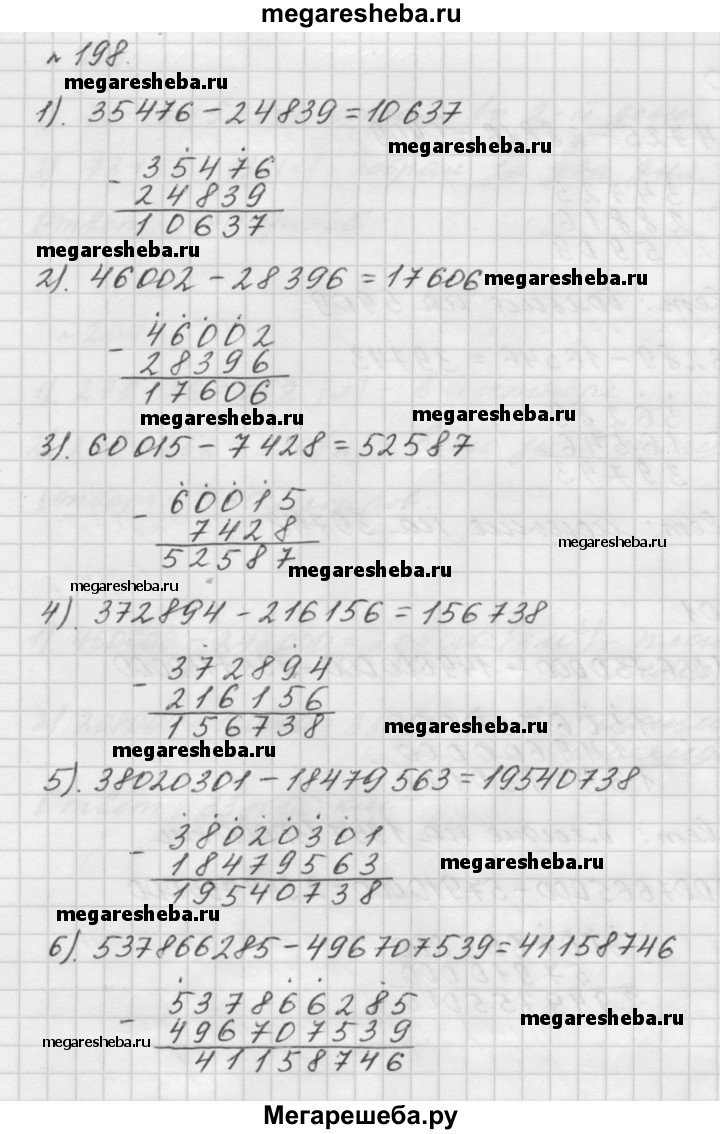 megaresheba.ru
№ 198.
megaresheba.ru
1). 35476 - 24839 = 10637
megaresheba.ru
- 35476
24839
10637
megaresheba.ru
2). 46002 - 28396 = 17606
megaresheba.ru
- 46002
28396
17606
megaresheba.ru
megaresheba.ru
3). 60015 - 7428 = 52587
- 60015
7428
52587
megaresheba.ru
megaresheba.ru
megaresheba.ru
4). 372894 - 216156 = 156738
- 372894
216156
156738
megaresheba.ru
megaresheba.ru
5). 38020301 - 18479563 = 19540738
- 38020301
18479563
19540738
megaresheba.ru
megaresheba.ru
6). 537866285 - 496707539 = 41158746
- 537866285
496707539
41158746
megaresheba.ru
megaresheba.ru
Мегарешеба.ру